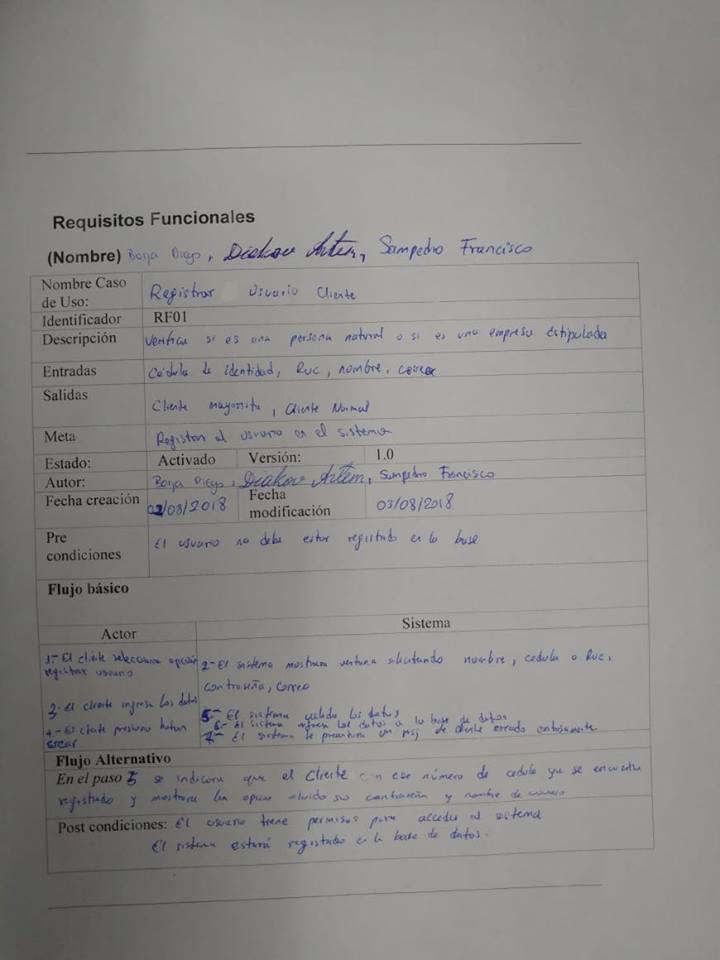 Requisitos Funcionales
(Nombre) Borja Diego, Diakov Artem, Sampedro Francisco
Nombre Caso de Uso: Registrar Usuario Cliente
Identificador RF01
Descripción Verifica si es una persona natural o si es una empresa estipulada
Entradas Cédula de identidad, Ruc, nombre, correo
Salidas Cliente mayorista, Cliente Normal
Meta Registrar al usuario en el sistema
Estado: Activado Versión: 1.0
Autor: Borja Diego, Diakov Artem, Sampedro Francisco
Fecha creación 02/08/2018 Fecha modificación 03/08/2018
Pre condiciones El usuario no debe estar registrado en la base
Flujo básico
Actor Sistema
1.- El cliente selecciona opción registrar usuario
2- El sistema mostrara ventana solicitando nombre, cedula o Ruc, contraseña, correo
3- el cliente ingresa los datos
4- El cliente presiona boton crear
5- El sistema valida los datos
6- El sistema ingresa los datos a la base de datos
7- El sistema te presentara un msj de cliente creado exitosamente
Flujo Alternativo
En el paso 5 se indicara que el cliente con ese número de cedula ya se encuentra
registrado y mostrara la opcion olvido su contraseña y nombre de usuario
Post condiciones: El usuario tiene permisos para acceder al sistema
El sistema estará registrado en la base de datos.